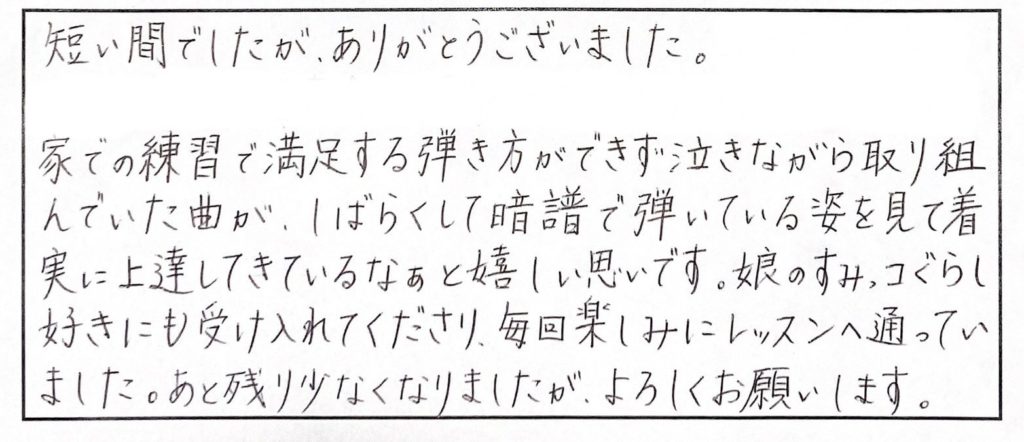 短い間でしたが、ありがとうございました。
家での練習で満足する弾き方ができず泣きながら取り組
んでいた曲が、しばらくして暗譜で弾いている姿を見て着
実に上達してきているなぁと嬉しい思いです。娘のすみっコぐらし
好きにも受け入れてくださり、毎回楽しみにレッスンへ通ってい
ました。あと残り少なくなりましたが、よろしくお願いします。